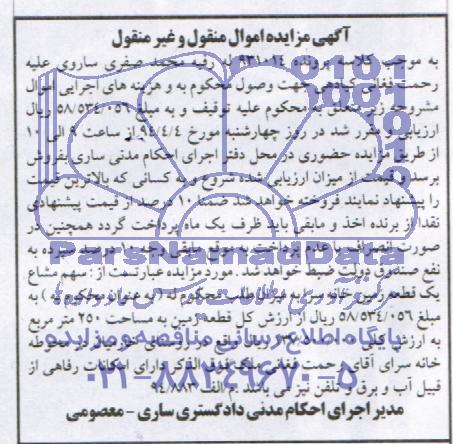 آگهی مزایده اموال منقول و غیر منقول
به موجب کلاسه پرونده ۹۳۱۰۱۴ له رقیه محمد صفری ساروی علیه
رحمت فغانی جهت وصول محکوم به و هزینه های اجرایی اموال
مشروحه زیر متعلق به محکوم علیه توقیف و به مبلغ ۵۸/۵۳۴/۰۵۶ ریال
ارزیابی و مقرر شد در روز چهارشنبه مورخ ۹۴/۴/۳ از ساعت ۹ الی ۱۰
از طریق مزایده حضوری در محل دفتر اجرای احکام مدنی ساری بفروش
برسد و قیمت از میزان ارزیابی شده شروع و به کسانی که بالاترین قیمت
را پیشنهاد نمایند فروخته خواهد شد ضمنا ۱۰ درصد از قیمت پیشنهادی
نقدا از برنده اخذ و مابقی باید ظرف یک ماه پرداخت گردد همچنین در
صورت انصراف یا عدم پرداخت به موقع مابقی وجه ۱۰ درصد سپرده به
نفع صندوق دولت ضبط خواهد شد. مورد مزایده عبارتست از: سهم مشاع
یک قطعه زمین خانه سرا به میزان طلب محکوم له (به عنوان محکوم به) به
مبلغ ۵۸/۵۳۴/۰۵۶ ریال از ارزش کل قطعه زمین به مساحت ۲۵۰ متر مربع
به ارزش کلی واقع در روستای محوطه
خانه سرای آقای رحمت فغانی ملک فوق الذکر دارای امکانات رفاهی از
قبیل آب و برق و تلفن نیز می باشد. م الف ۹۴/۸۸۳
مدیر اجرای احکام مدنی دادگستری ساری - معصومی
ParsNamadData
پایگاه اطلاع رسانی مناقصه و مزایده
۰۲۱-۸۸۳۴۹۶۷۰-۵